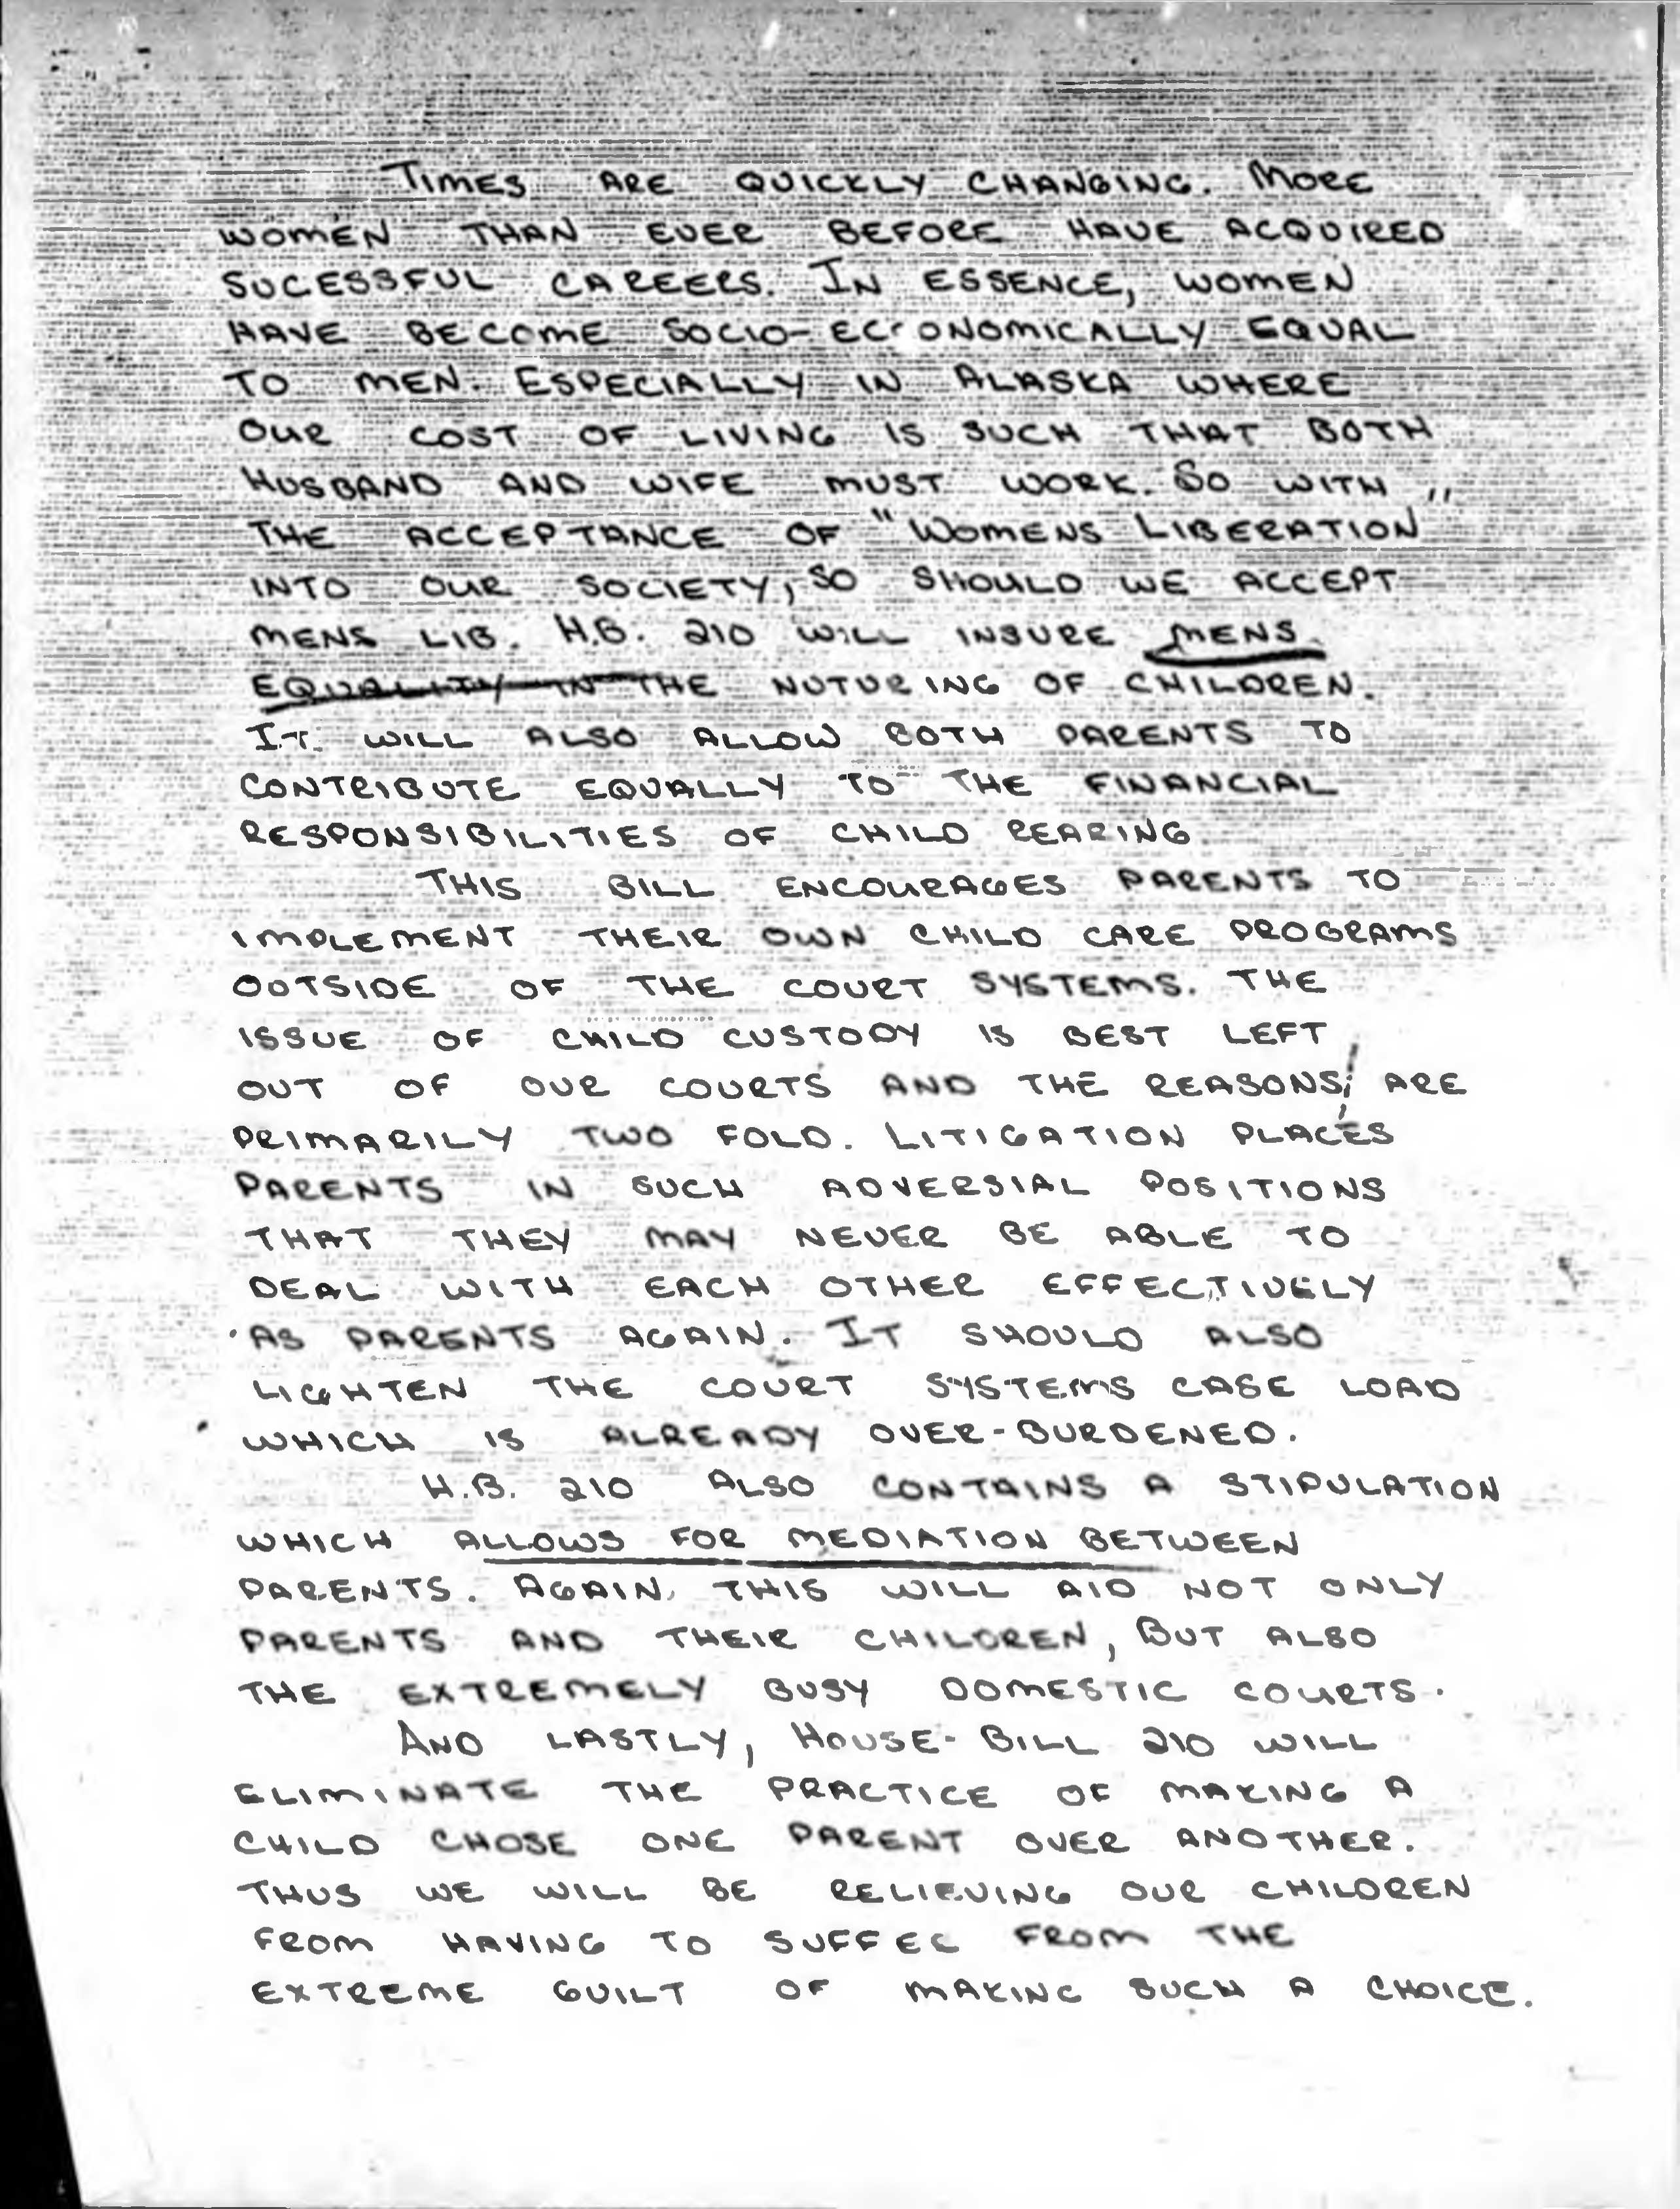 TIMES ARE QUICKLY CHANGING. MORE
WOMEN THAN EVER BEFORE HAVE ACQUIRED
SUCESSFUL CAREERS. IN ESSENCE, WOMEN
HAVE BECOME SOCIO-ECONOMICALLY EQUAL
TO MEN. ESPECIALLY IN ALASKA WHERE
OUR COST OF LIVING IS SUCH THAT BOTH
HUSBAND AND WIFE MUST WORK. SO WITH
THE ACCEPTANCE OF "WOMENS LIBERATION"
INTO OUR SOCIETY, SO SHOULD WE ACCEPT
MENS LIB. H.B. 210 WILL INSURE MENS
EQUALITY IN THE NUTURING OF CHILDREN.
IT WILL ALSO ALLOW BOTH PARENTS TO
CONTRIBUTE EQUALLY TO THE FINANCIAL
RESPONSIBILITIES OF CHILD REARING
THIS BILL ENCOURAGES PARENTS TO
IMPLEMENT THEIR OWN CHILD CARE PROGRAMS
OUTSIDE OF THE COURT SYSTEMS. THE
ISSUE OF CHILD CUSTODY IS BEST LEFT
OUT OF OUR COURTS AND THE REASONS ARE
PRIMARILY TWO FOLD. LITIGATION PLACES
PARENTS IN SUCH ADVERSIAL POSITIONS
THAT THEY MAY NEVER BE ABLE TO
DEAL WITH EACH OTHER EFFECTIVELY
AS PARENTS AGAIN. IT SHOULD ALSO
LIGHTEN THE COURT SYSTEMS CASE LOAD
WHICH IS ALREADY OVER-BURDENED.
H.B. 210 ALSO CONTAINS A STIPULATION
WHICH ALLOWS FOR MEDIATION BETWEEN
PARENTS. AGAIN, THIS WILL AID NOT ONLY
PARENTS AND THEIR CHILDREN, BUT ALSO
THE EXTREMELY BUSY DOMESTIC COURTS.
AND LASTLY, HOUSE-BILL 210 WILL
ELIMINATE THE PRACTICE OF MAKING A
CHILD CHOSE ONE PARENT OVER ANOTHER.
THUS WE WILL BE RELIEVING OUR CHILDREN
FROM HAVING TO SUFFER FROM THE
EXTREME GUILT OF MAKING SUCH A CHOICE.